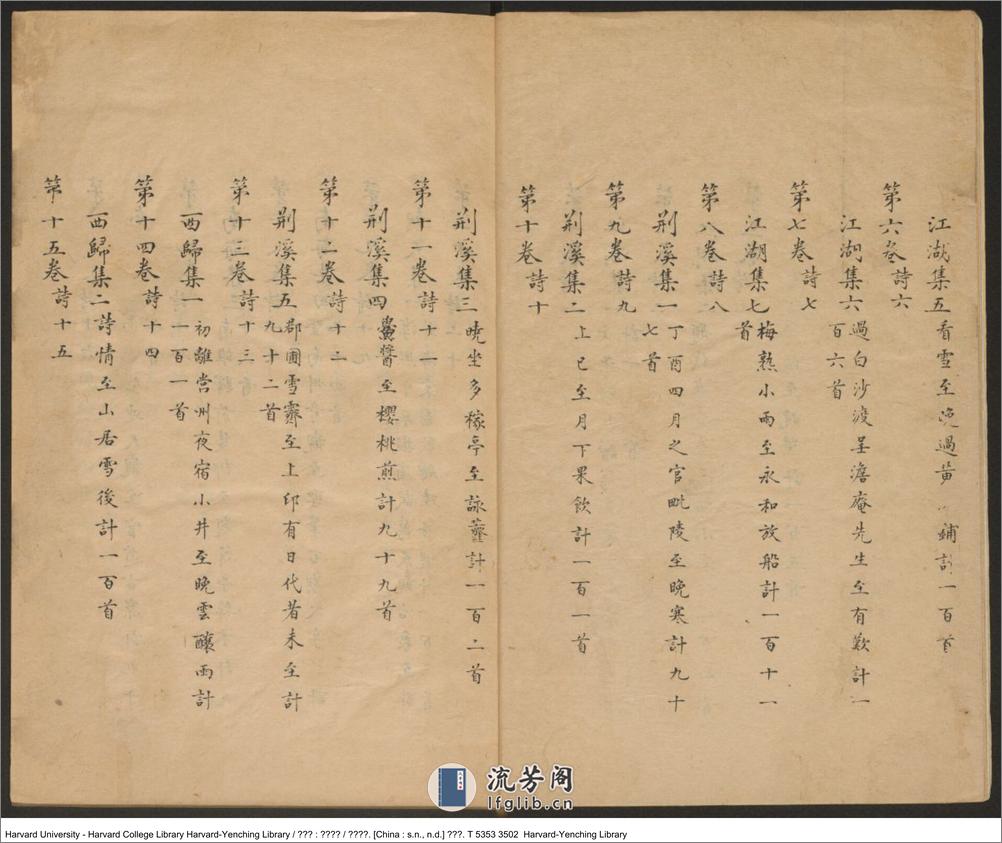 江湖集五看雪至晚過黃鋪計一百首
第六卷詩六
江湖集六過白沙渡呈澹庵先生至有歎計一
百六首
第七卷詩七
江湖集七梅熟小雨至永和放船計一百十一
首
第八卷詩八
荆溪集一丁酉四月之官毗陵至晚寒計九十
七首
第九卷詩九
荆溪集二上巳至月下果飲計一百一首
第十卷詩十
荆溪集三曉坐多稼亭至詠虀計一百二首
第十一卷詩十一
荆溪集四醬至櫻桃煎計九十九首
第十二卷詩十二
荆溪集五郡圃雪霽至上印有日代者未至計
九十二首
第十三卷詩十三
西歸集一初離常州夜宿小井至晚雲釀雨計
一百一首
第十四卷詩十四
西歸集二詩情至山居雪後計一百首
第十五卷詩十五
流芳阁
lfglib.cn
Harvard University - Harvard College Library Harvard-Yenching Library / ??? : ???? / ????. [China : s.n., n.d.] ???. T 5353 3502 Harvard-Yenching Library